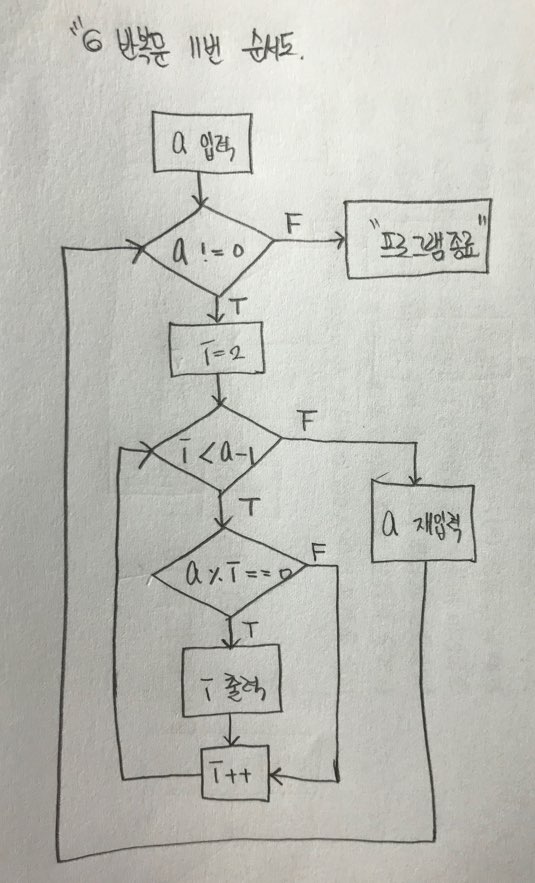 "6 반복문 11번 순서도.
a 입력
a != 0
F
"프로그램 종료"
T
i=2
i < a-1
F
T
a 재입력
a % i == 0
F
T
i 출력
i++